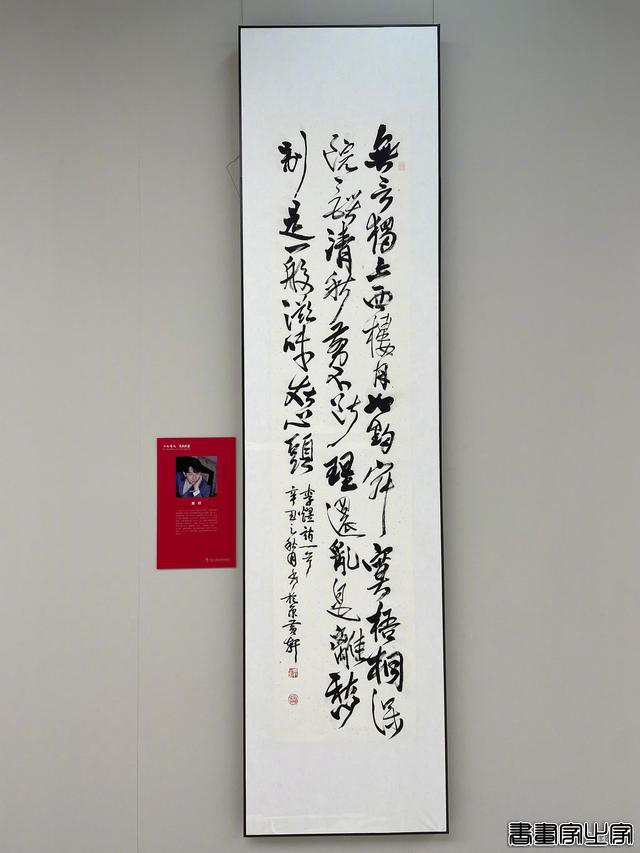 無言獨上西樓月如鉤寂寞梧桐深
院鎖清秋剪不斷理還亂是離愁
別是一般滋味在心頭
李煜詞一首
辛丑之秋月書於京黃軒
書畫家之家